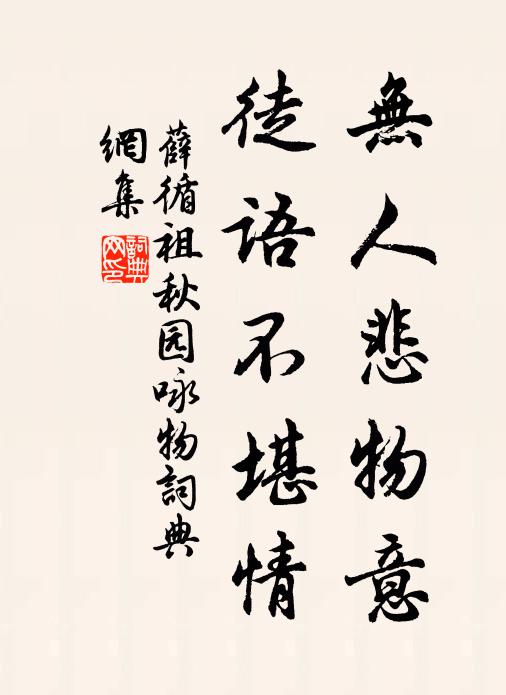 無人悲物意
徒語不堪情
薛循祖秋园咏物詞典
網集
詞典网印